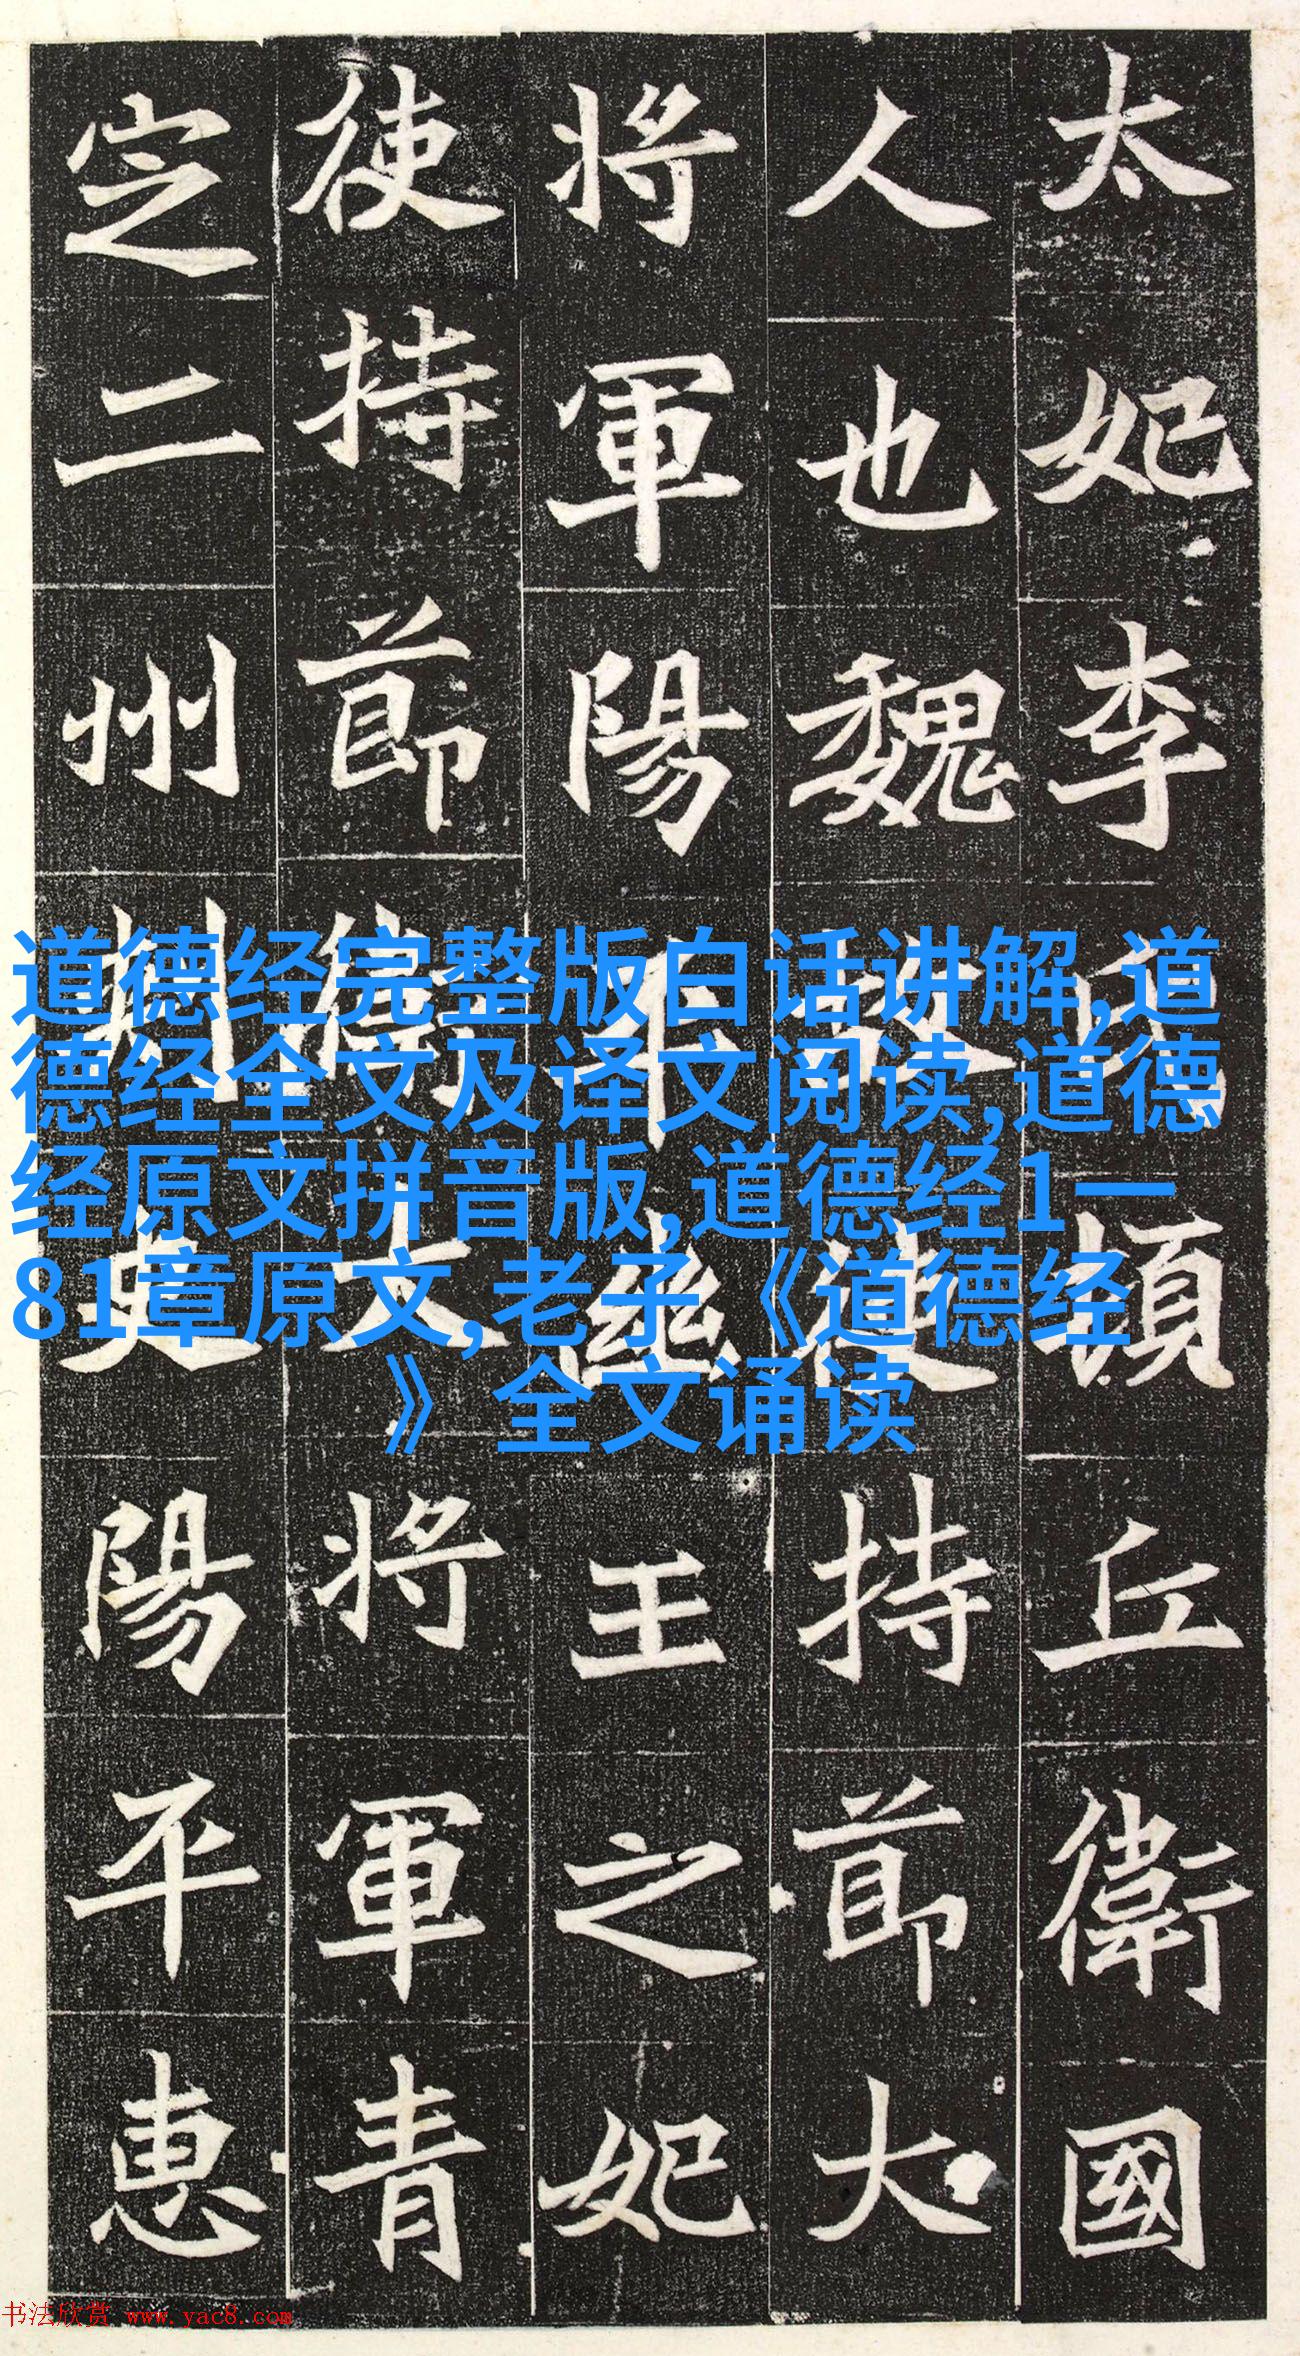 太妃李氏頓丘衛國
人也魏故使持節大
將軍陽平幽王之妃
使持節衛大將軍青
定二州刺史陽平惠
道德经完整版白话讲解,道
德经全文及译文阅读,道德
经原文拼音版,道德经1一
81章原文,老子《道德经
》全文诵读
书法欣赏 www.yac8.com